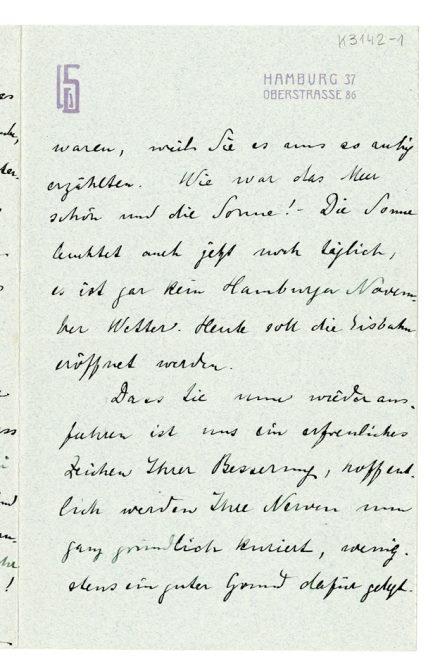 K3142-1
HAMBURG 37
OBERSTRASSE 86
waren, weil Sie es uns so ruhig
erzählten. Wie war das Meer
schön und die Sonne! - Die Sonne
leuchtet auch jetzt noch täglich,
es ist gar kein Hamburger Novem-
ber Wetter. Heute soll die Eisbahn
eröffnet werden.
Dass Sie nun wieder aus-
fuhren ist uns ein erfreuliches
Zeichen Ihrer Besserung, hoffent-
lich werden Ihre Nerven nun
ganz gründlich kuriert, wenig-
stens ein guter Grund dafür gelegt.